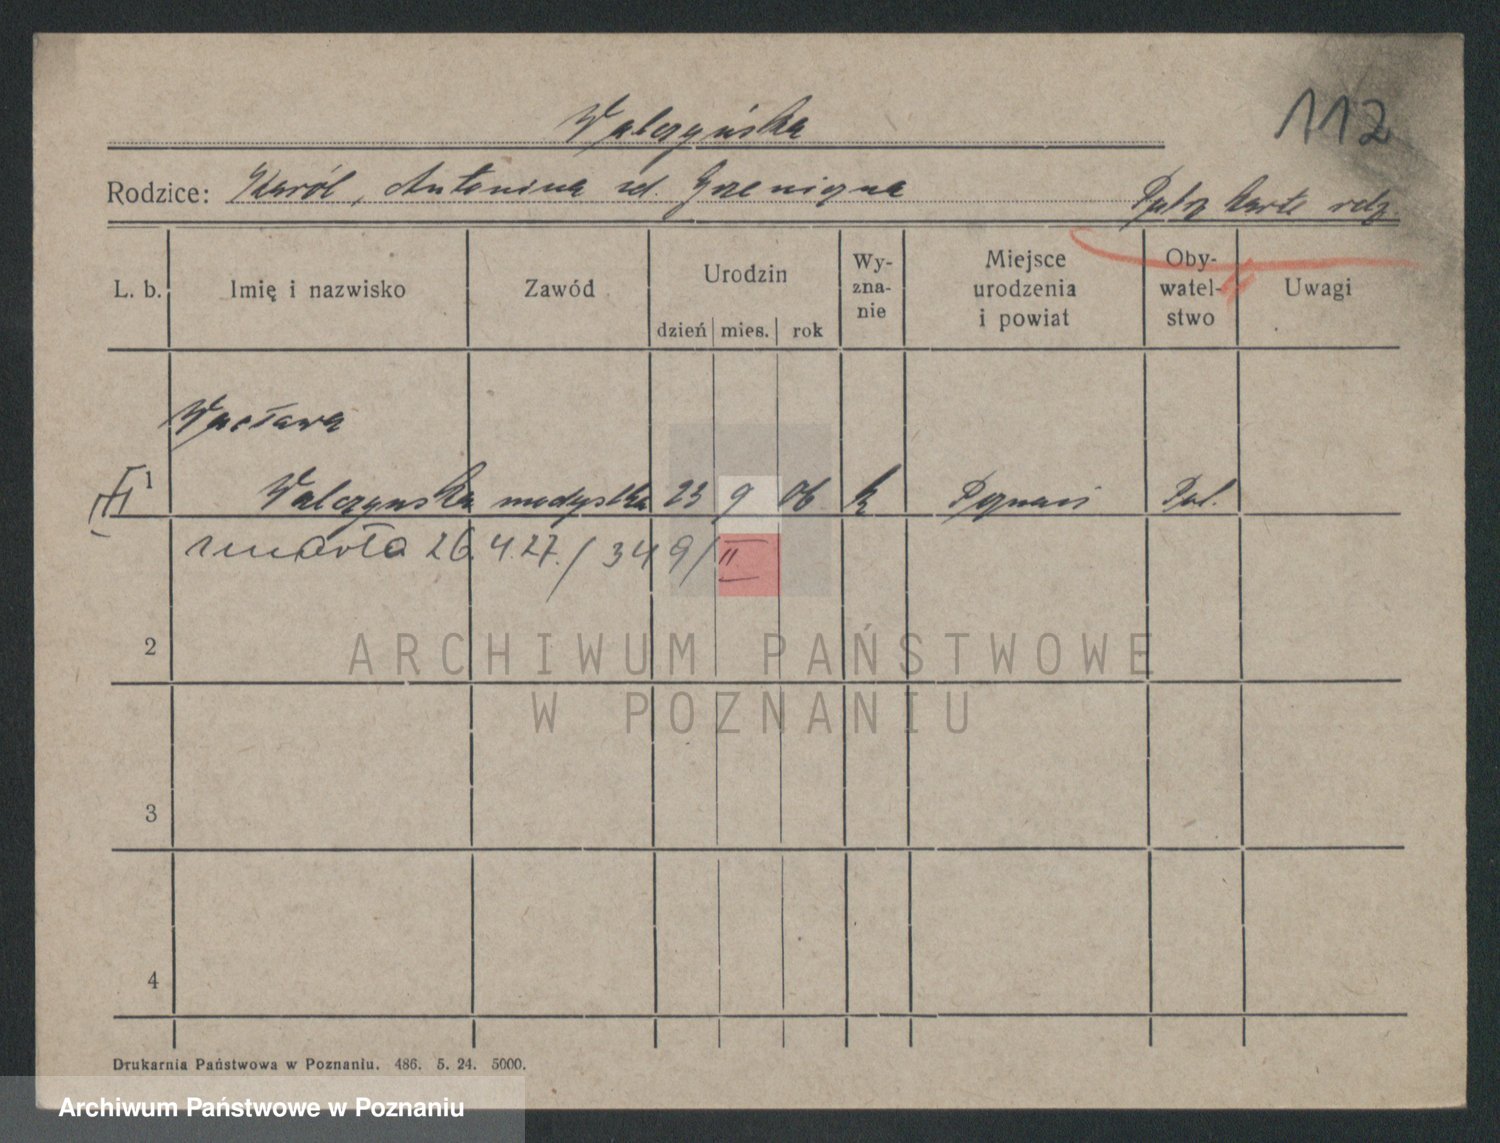 112
Walczyńska
Rodzice: Karól, Antonina zd.
karte
L. b. Imię i nazwisko Zawód Urodzin dzień mies. rok Wy-zna-nie Miejsce urodzenia i powiat Oby-watel-stwo Uwagi
Wacława
1 Walczynska modystka 23 9 06 k Poznań Pol.
zmarła 26.4.27. / 349 / II
2
ARCHIWUM PAŃSTWOWE
W POZNANIU
3
4
Drukarnia Państwowa w Poznaniu. 486. 5. 24. 5000.
Archiwum Państwowe w Poznaniu